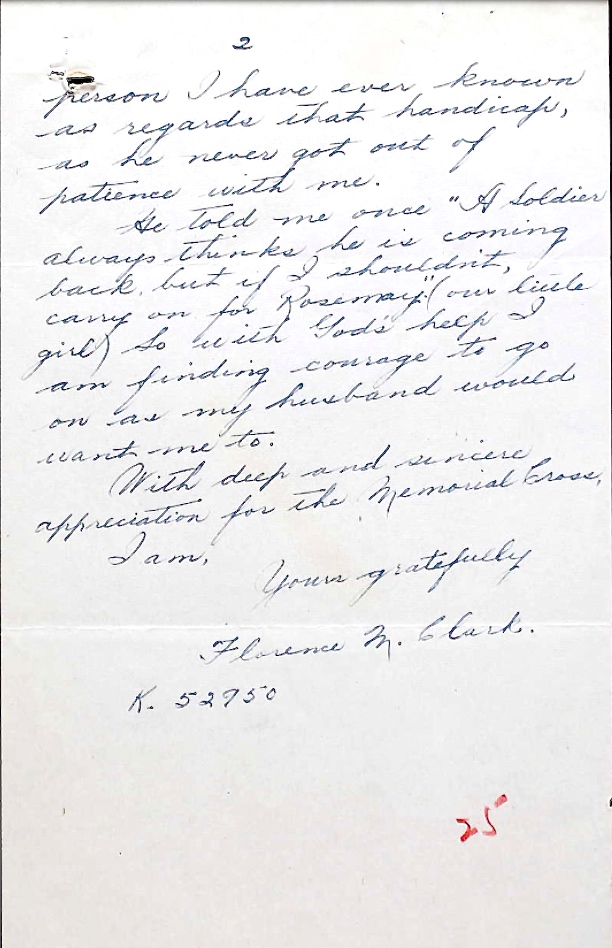 2
person I have ever known
as regards that handicap,
as he never got out of
patience with me.
He told me once "A Soldier
always thinks he is coming
back, but if I shouldn't,
carry on for Rosemay," (our little
girl) So with God's help I
am finding courage to go
on as my husband would
want me to.
With deep and sincere
appreciation for the Memorial Cross,
I am,
Yours gratefully
Florence M. Clark.
K. 52950
25